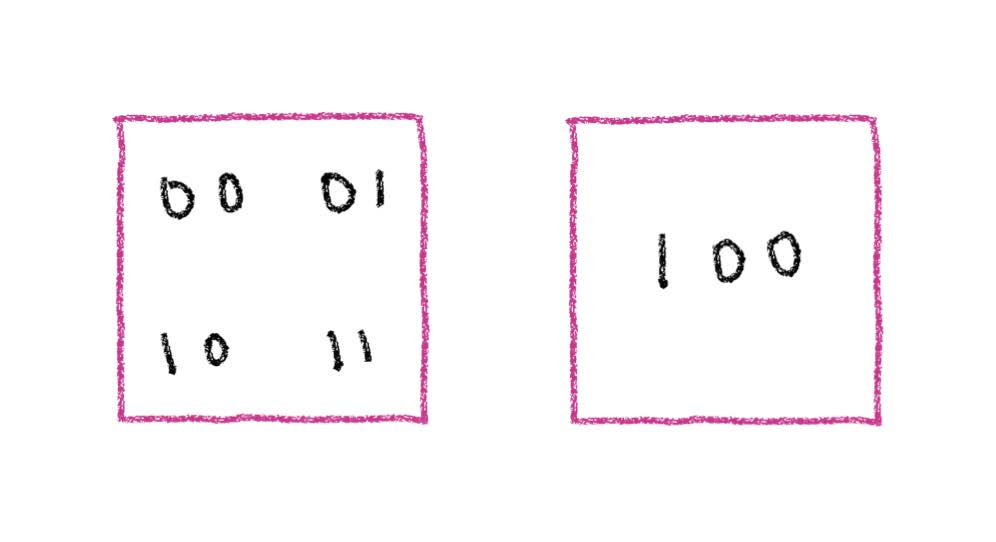 00 01
10 11
100